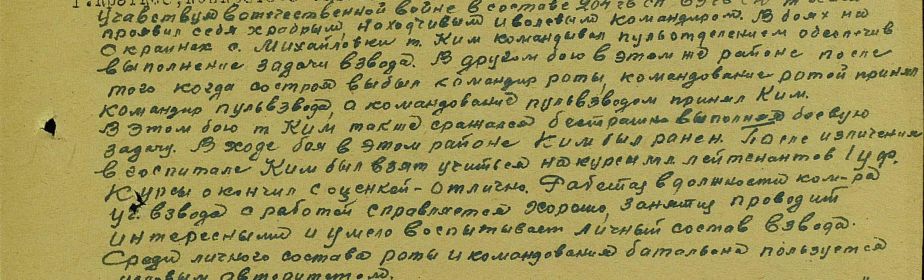 Участвуя в отечественной войне в составе
проявил себя храбрым, находчивым и волевым командиром. В боях на
окраинах с. Михайловки т. Ким командывал пульотделением обеспечив
выполнение задачи взвода. В другом бою в этом же районе после
того когда со строя выбыл командир роты, командование ротой принял
командир пульвзвода, а командование пульвзводом принял Ким.
В этом бою т. Ким, также сражался бестрашно выполняя боевую
задачу. В ходе боя в этом районе Ким был ранен. После излечения
в госпитале Ким был взят учиться на курсы мл. лейтенантов 1 уф.
Курсы окончил с оценкой - отлично. Работая в должности ком-ра
уч. взвода с работой справляется хорошо, занятия проводит
интересными и умело воспитывает личный состав взвода.
Среди личного состава роты и командования батальона пользуется
авторитетом.